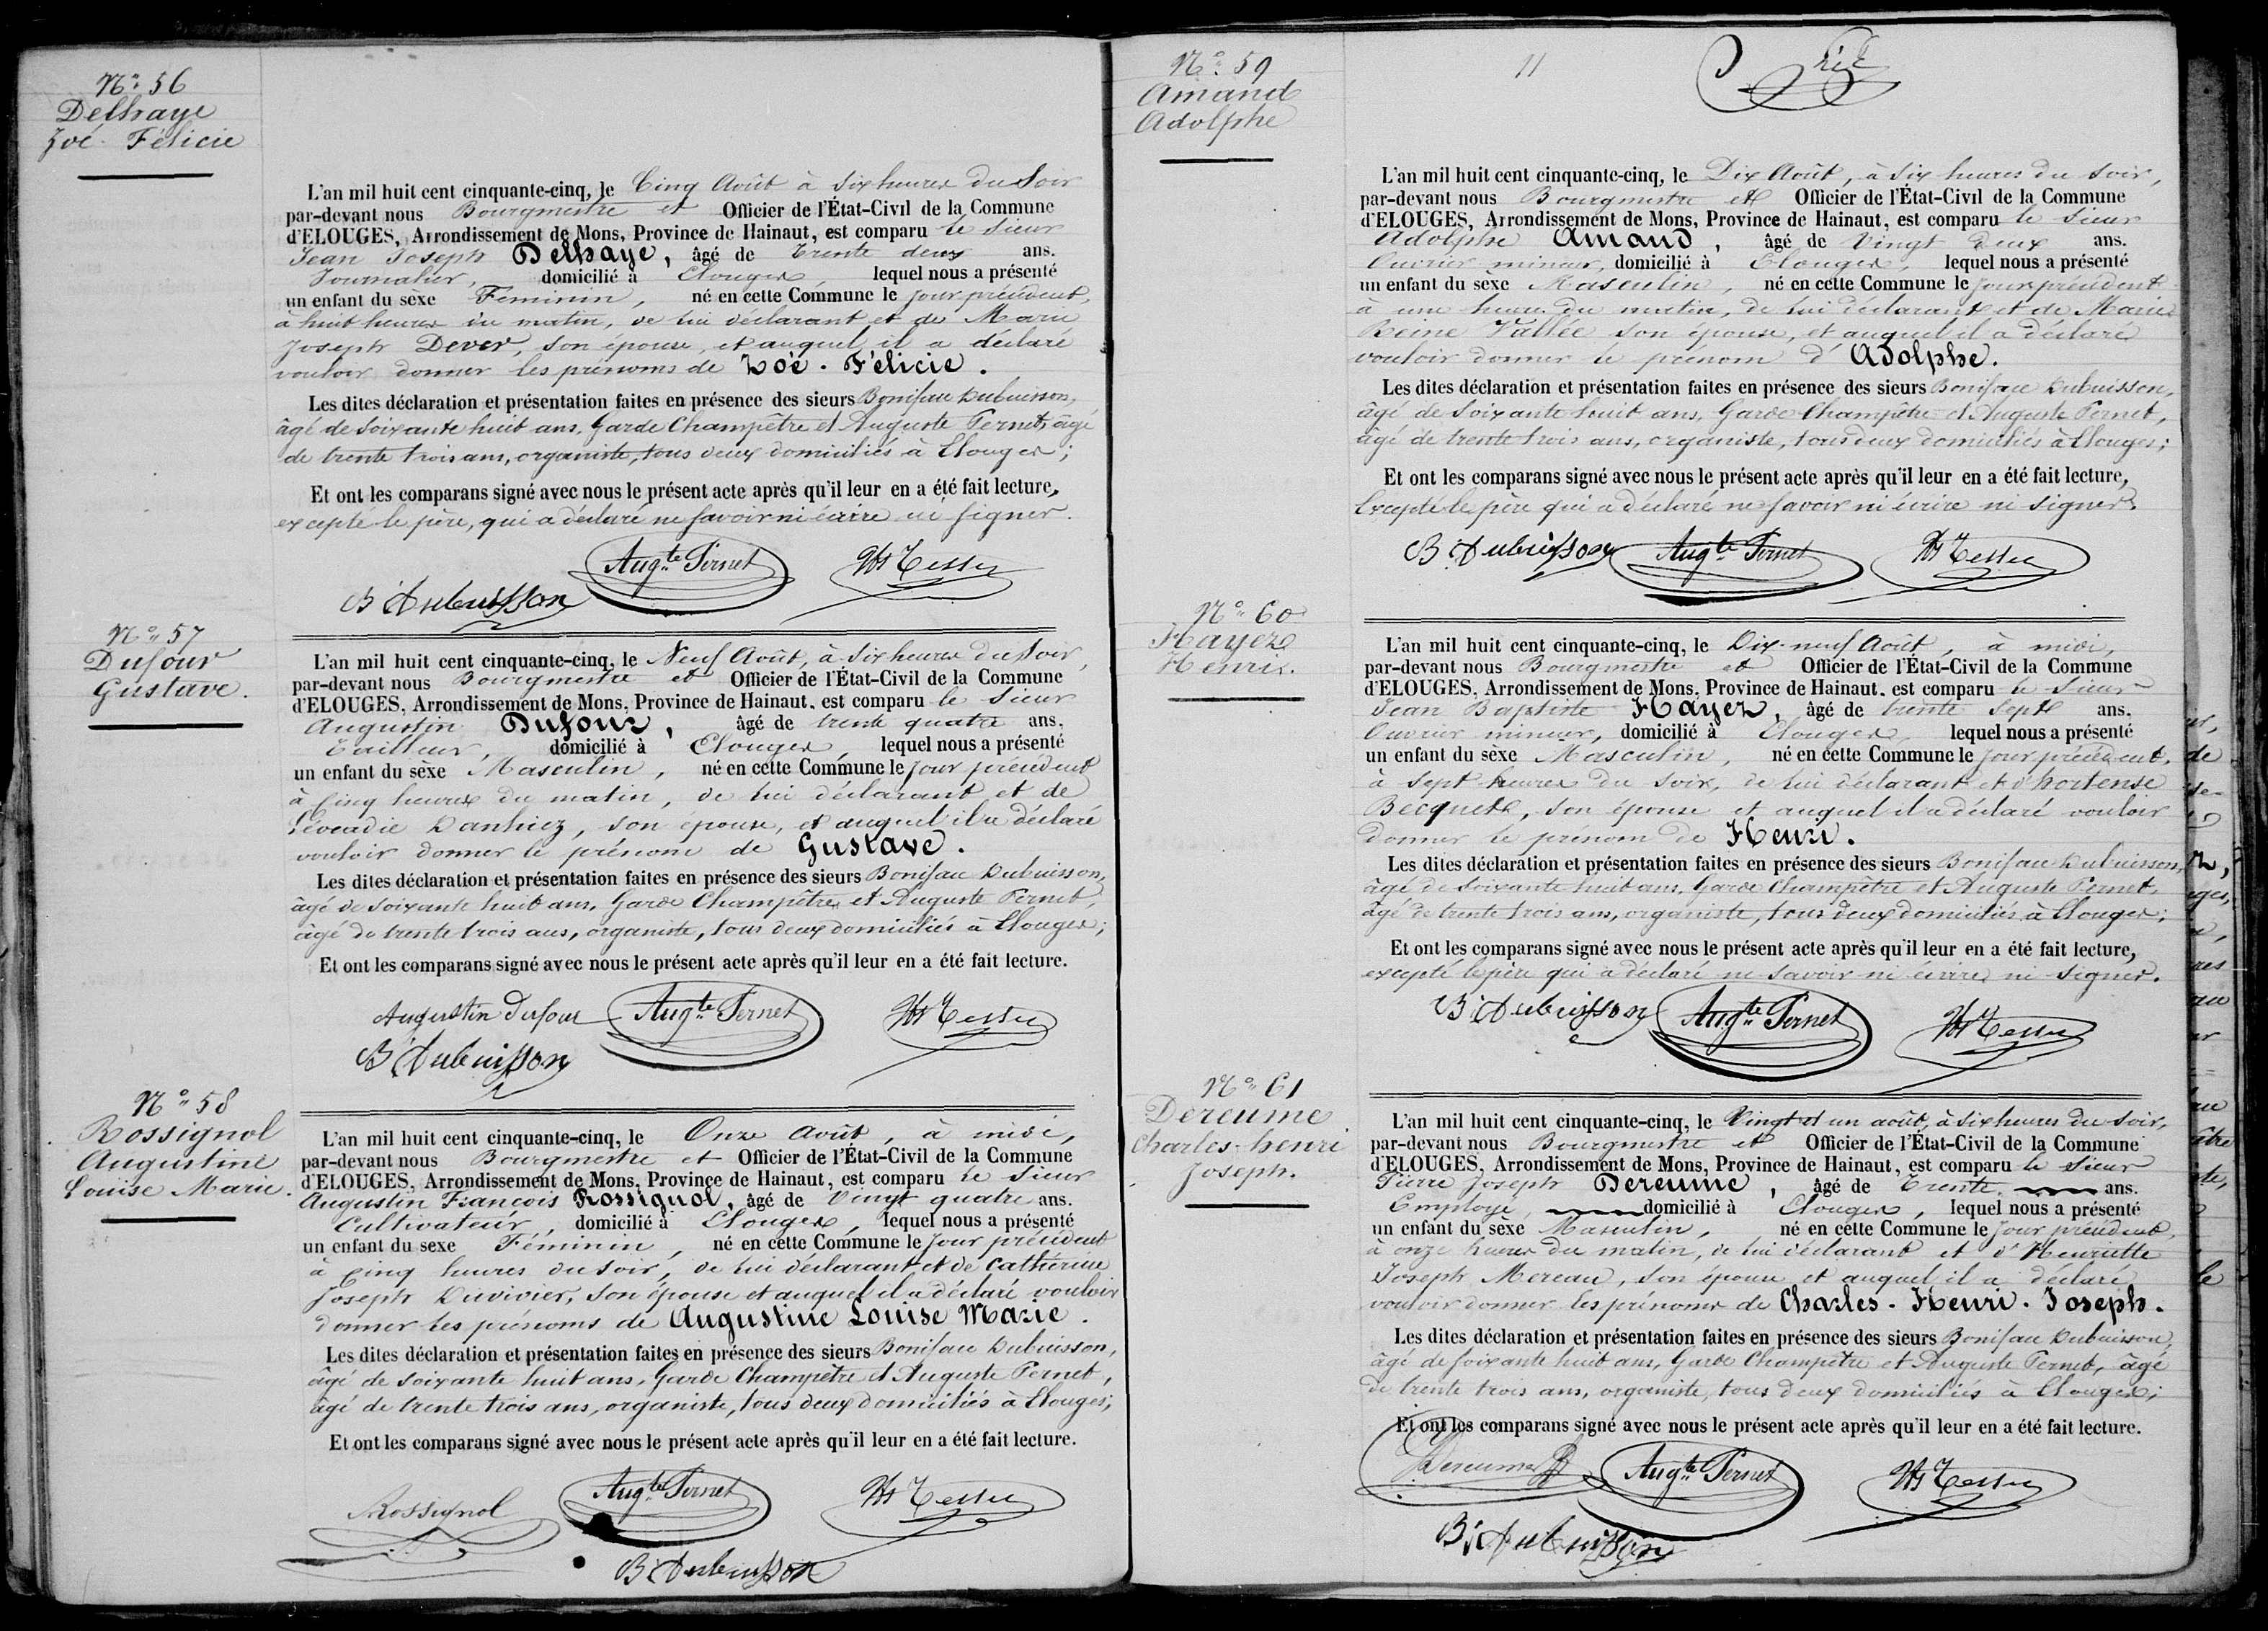 Nº 56
Delhaye
Zoé Félicie
L'an mil huit cent cinquante-cinq, le Cinq Août à six heures du soir
par-devant nous Bourgmestre et Officier de l'État-Civil de la Commune
d'ELOUGES, Arrondissement de Mons, Province de Hainaut, est comparu le sieur
Jean Joseph Delhaye, âgé de trente deux ans.
Journalier, domicilié à Elouges, lequel nous a présenté
un enfant du sexe Féminin, né en cette Commune le jour précédent,
à huit heures du matin, de lui déclarant et de Marie
Joseph Dever, son épouse, et auquel il a déclaré
vouloir donner les prénoms de Zoé. Félicie.
Les dites déclaration et présentation faites en présence des sieurs Boniface Dubuisson,
âgé de soixante huit ans, Garde Champêtre et Auguste Pernet, âgé
de trente trois ans, organiste, tous deux domiciliés à Elouges;
Et ont les comparans signé avec nous le présent acte après qu'il leur en a été fait lecture,
excepté le père, qui a déclaré ne savoir ni écrire ni signer.
Augte Pernet
B Dubuisson
Nº 57
Dufour
Gustave.
L'an mil huit cent cinquante-cinq, le Neuf Août, à six heures du soir,
par-devant nous Bourgmestre et Officier de l'État-Civil de la Commune
d'ELOUGES, Arrondissement de Mons, Province de Hainaut, est comparu le sieur
Augustin Dufour, âgé de trente quatre ans.
Tailleur, domicilié à Elouges, lequel nous a présenté
un enfant du sèxe Masculin, né en cette Commune le jour précédent
à cinq heures du matin, de lui déclarant et de
Léocadie Danhiez, son épouse, et auquel il a déclaré
vouloir donner le prénom de Gustave.
Les dites déclaration et présentation faites en présence des sieurs Boniface Dubuisson,
âgé de soixante huit ans, Garde Champêtre et Auguste Pernet,
âgé de trente trois ans, organiste, tous deux domiciliés à Elouges;
Et ont les comparans signé avec nous le présent acte après qu'il leur en a été fait lecture.
Augustin Dufour Augte Pernet
B Dubuisson
Nº 58
Rossignol
Augustine
Louise Marie.
L'an mil huit cent cinquante-cinq, le Onze Août, à midi,
par-devant nous Bourgmestre et Officier de l'État-Civil de la Commune
d'ELOUGES, Arrondissement de Mons, Province de Hainaut, est comparu le sieur
Augustin François Rossignol, âgé de vingt quatre ans.
Cultivateur, domicilié à Elouges, lequel nous a présenté
un enfant du sexe Féminin, né en cette Commune le jour précédent
à cinq heures du soir, de lui déclarant et de Catherine
Joseph Duvivier, son épouse et auquel il a déclaré vouloir
donner les prénoms de Augustine Louise Marie.
Les dites déclaration et présentation faites en présence des sieurs Boniface Dubuisson,
âgé de soixante huit ans, Garde Champêtre et Auguste Pernet,
âgé de trente trois ans, organiste, tous deux domiciliés à Elouges;
Et ont les comparans signé avec nous le présent acte après qu'il leur en a été fait lecture.
Rossignol Augte Pernet
B Dubuisson
11
Nº 59
Amand
Adolphe
L'an mil huit cent cinquante-cinq, le Dix Août, à six heures du soir,
par-devant nous Bourgmestre et Officier de l'État-Civil de la Commune
d'ELOUGES, Arrondissement de Mons, Province de Hainaut, est comparu le sieur
Adolphe Amand, âgé de vingt deux ans.
Ouvrier mineur, domicilié à Elouges, lequel nous a présenté
un enfant du sèxe Masculin, né en cette Commune le jour précédent
à une heure du matin, de lui déclarant et de Marie
Reine Vallée son épouse, et auquel il a déclaré
vouloir donner le prénom d'Adolphe.
Les dites déclaration et présentation faites en présence des sieurs Boniface Dubuisson,
âgé de soixante huit ans, Garde Champêtre et Auguste Pernet,
âgé de trente trois ans, organiste, tous deux domiciliés à Elouges;
Et ont les comparans signé avec nous le présent acte après qu'il leur en a été fait lecture,
Excepté le père qui a déclaré ne savoir ni écrire ni signer.
B Dubuisson Augte Pernet
Nº 60
Hayez
Henri.
L'an mil huit cent cinquante-cinq, le Dix-neuf Août, à midi,
par-devant nous Bourgmestre et Officier de l'État-Civil de la Commune
d'ELOUGES, Arrondissement de Mons, Province de Hainaut, est comparu le sieur
Jean Baptiste Hayez, âgé de trente sept ans.
Ouvrier mineur, domicilié à Elouges, lequel nous a présenté
un enfant du sèxe Masculin, né en cette Commune le jour précédent,
à sept heures du soir, de lui déclarant et d'hortense
Becquet, son épouse et auquel il a déclaré vouloir
donner le prénom de Henri.
Les dites déclaration et présentation faites en présence des sieurs Boniface Dubuisson,
âgé de soixante huit ans, Garde Champêtre et Auguste Pernet,
âgé de trente trois ans, organiste, tous deux domiciliés à Elouges;
Et ont les comparans signé avec nous le présent acte après qu'il leur en a été fait lecture,
excepté le père qui a déclaré ne savoir ni écrire ni signer.
B Dubuisson Augte Pernet
Nº 61
Dereume
Charles-henri
Joseph.
L'an mil huit cent cinquante-cinq, le Vingt et un août, à six heures du soir,
par-devant nous Bourgmestre et Officier de l'État-Civil de la Commune
d'ELOUGES, Arrondissement de Mons, Province de Hainaut, est comparu le sieur
Pierre Joseph Dereume, âgé de Trente ans.
Employé, domicilié à Elouges, lequel nous a présenté
un enfant du sèxe Masculin, né en cette Commune le jour précédent,
à onze heures du matin, de lui déclarant et d'Henriette
Joseph Mereau, son épouse et auquel il a déclaré
vouloir donner les prénoms de Charles. Henri. Joseph.
Les dites déclaration et présentation faites en présence des sieurs Boniface Dubuisson,
âgé de soixante huit ans, Garde Champêtre et Auguste Pernet, âgé
de trente trois ans, organiste, tous deux domiciliés à Elouges;
Et ont les comparans signé avec nous le présent acte après qu'il leur en a été fait lecture.
Dereume Augte Pernet
B Dubuisson